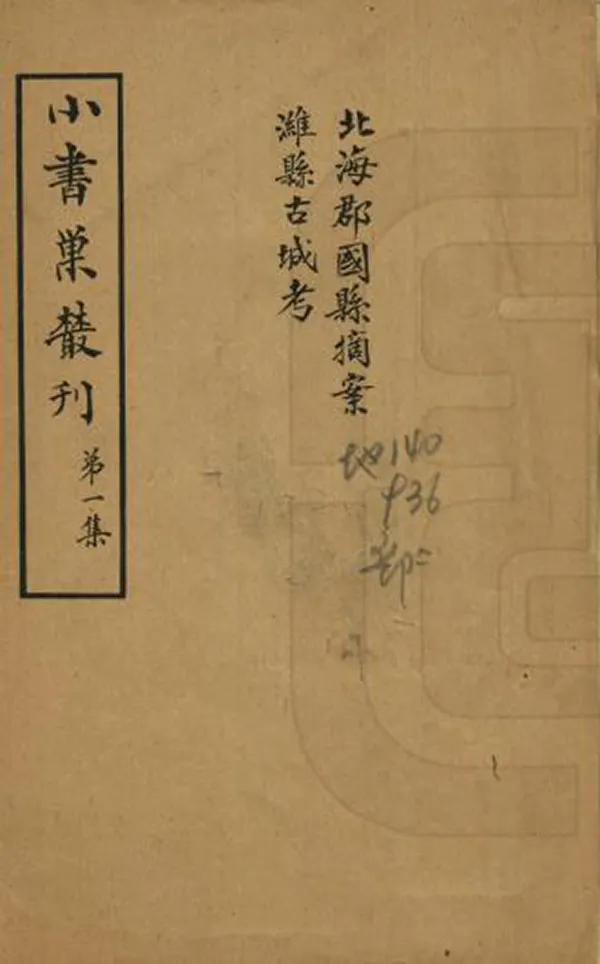 北海郡國縣摘案
濰縣古城考
小書巢叢刊 第一集
地140
936